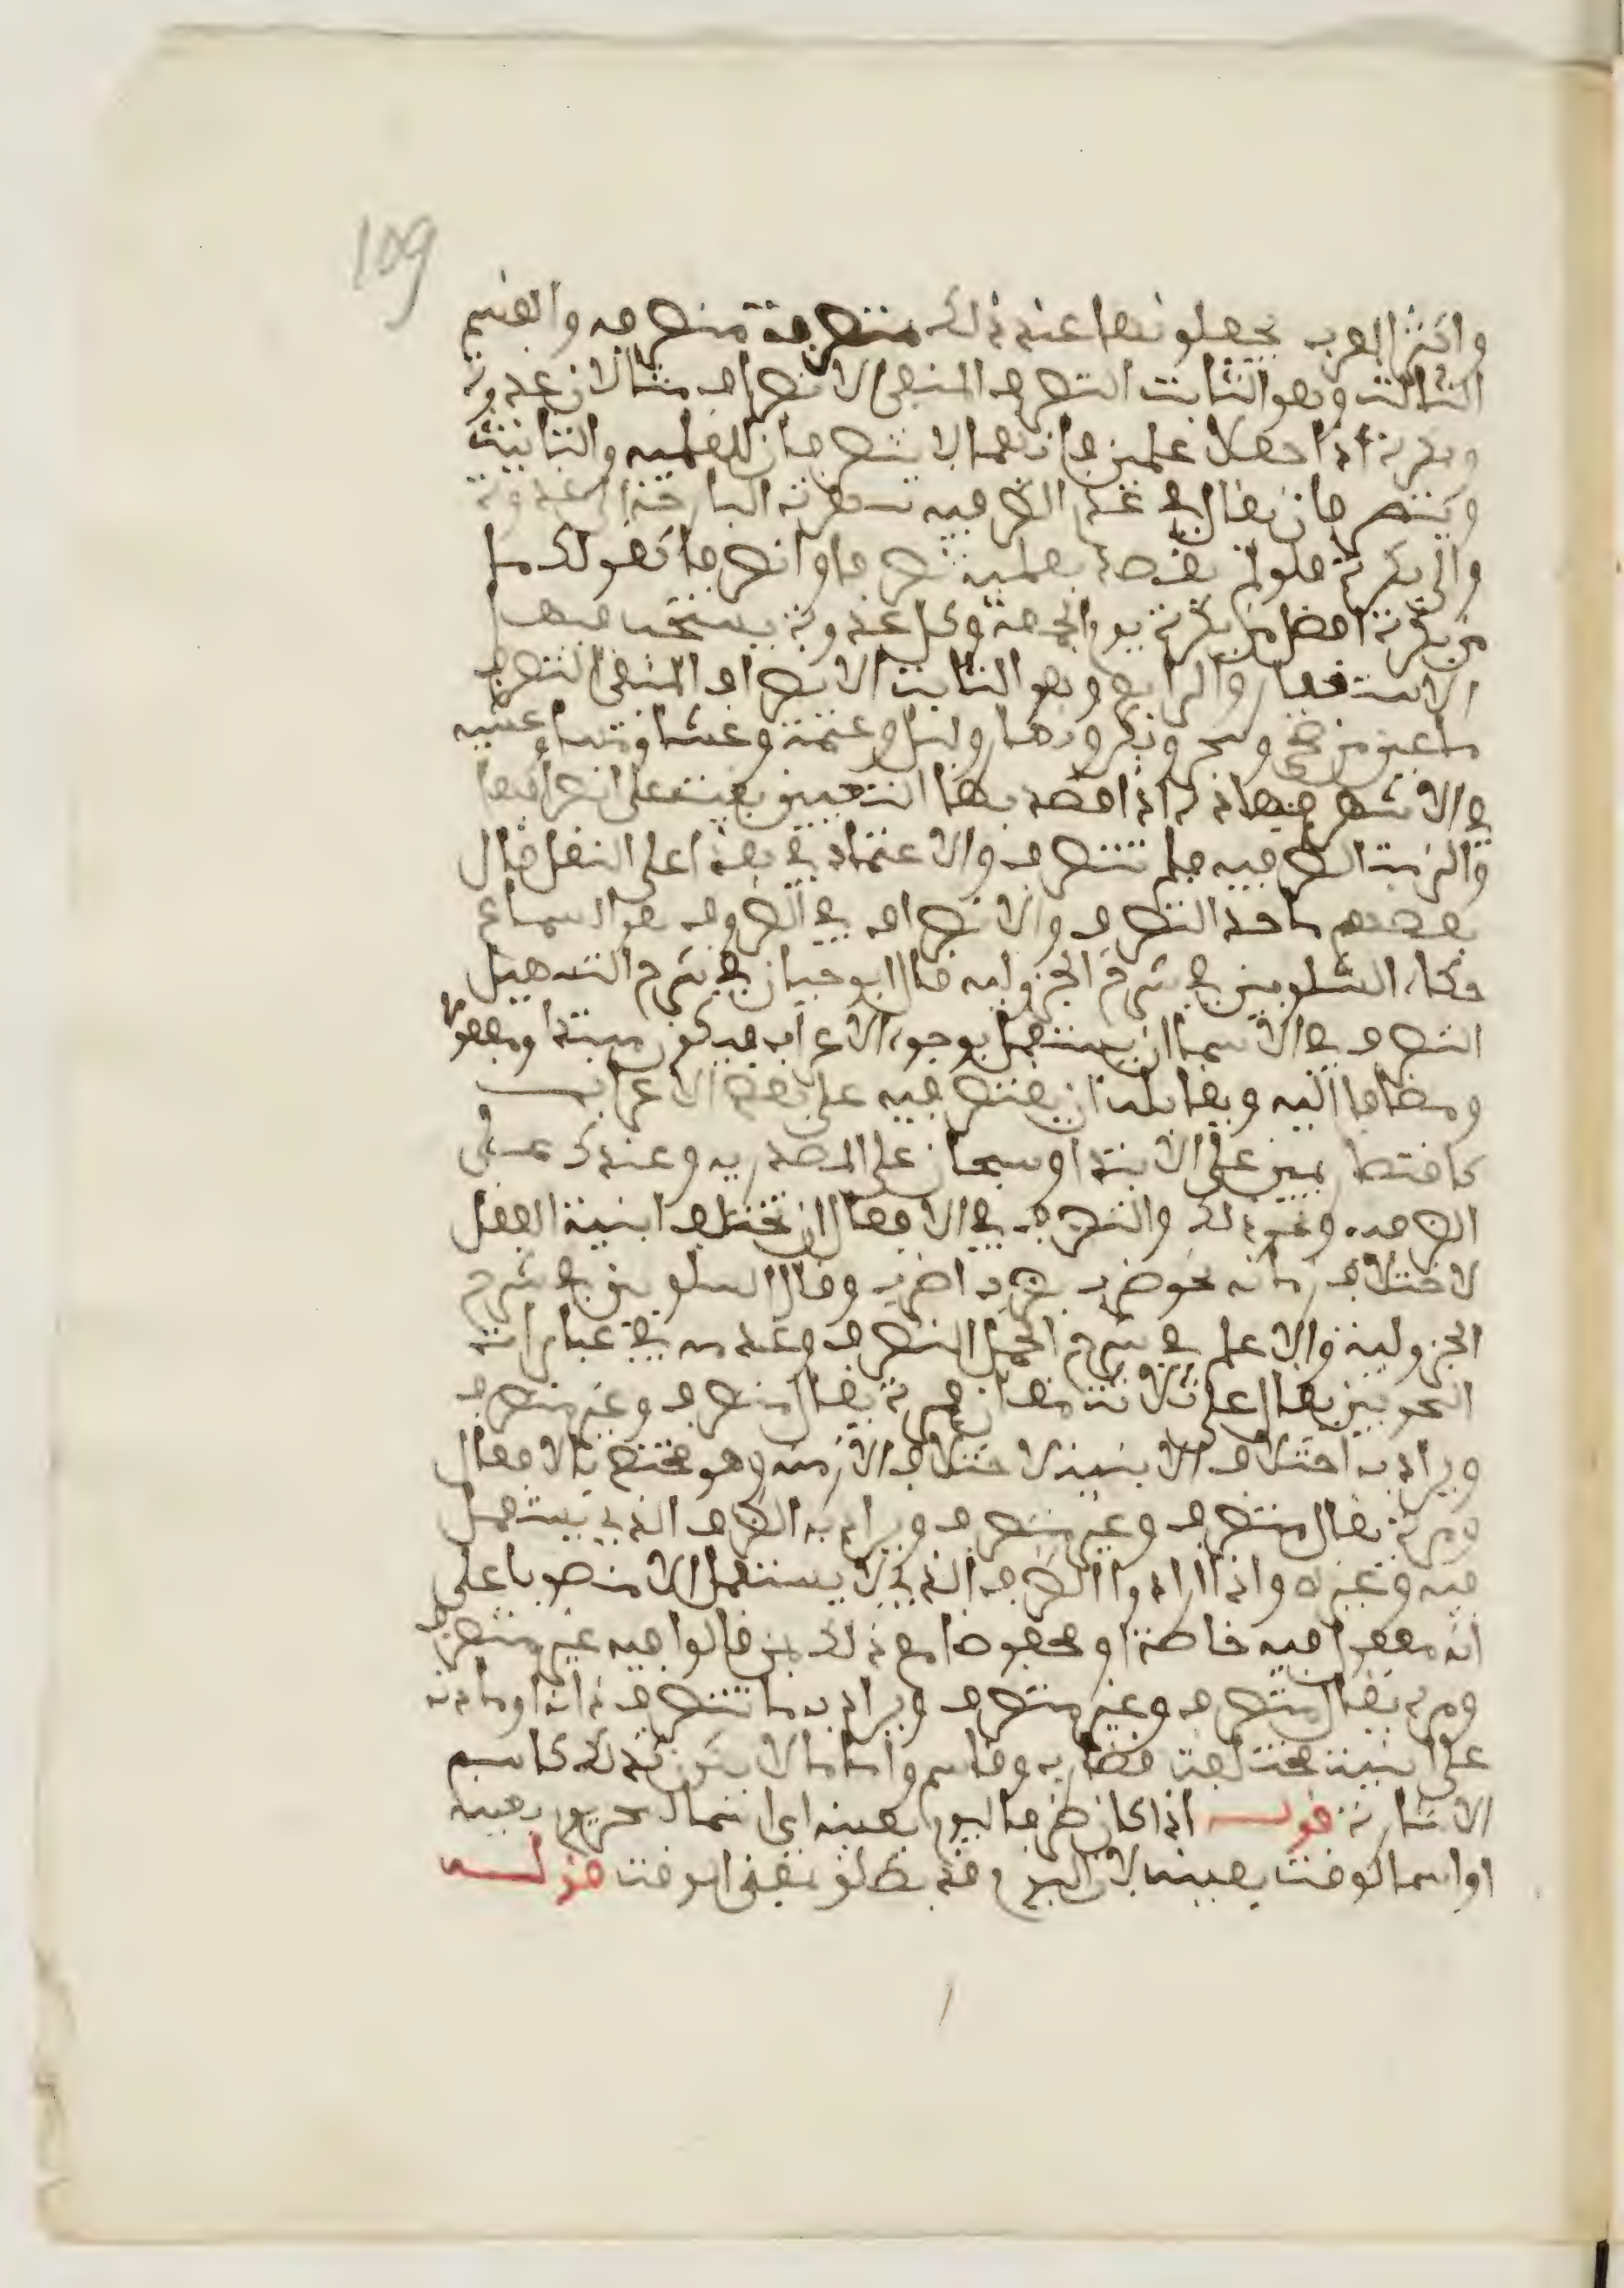 109
واكثر العرب يجعلونها عند ذلك متصرفة منصرفه والقسم
الثالث وهو الثابت التصرف المنفي الانصراف مثالان غدوة
وبكرة اذا جعلا علمين فانهما لا ينصرفان للعلميه والتانيث
ويتصرفان يقال في عدم الظرفيه سهرت البارحة الى غدوة
والى بكرة فلو لم يقصد بعلميه تصرفا وانصرفا كقولك ما
من بكرة افضل من بكرة يوم الجمعة وكل غدوة يستحب فيها
الاستغفار والرابع وهو الثابت الانصراف المنفي التصرف
ما عين من ضحى وسحر وبكر ونهار وليل وعتمة وعشاء ومساء وعشيه
في الاشهر فهاذه اذا قصد بها التعيين بقيت على انصرافها
والزمت الظرفيه فلم تتصرف والاعتماد في هذا على النقل قال
بعضهم ماخذ التصرف والانصراف في الظروف هو السماع
حكاه الشلوبين في شرح الجزوليه قال ابو حيان في شرح التسهيل
التصرف في الاسماء ان يستعمل بوجوه الاعراب فيكون مبتدا ومفعولا
ومضافا اليه ويقابله ان يقتصر فيه على بعض الاعراب
كاقتصار يمين على الابتدا وسبحان على المصدريه وعندك على
الظرفيه وغير ذلك والتصرف في الافعال ان تختلف ابنية الفعل
لاختلاف زمانه نحو ضرب يضرب اضرب وقال الشلوبين في شرح
الجزوليه والاعلم في شرح الجمل التصرف وعدمه في عبارات
النحويين يقال على ثلاثة معان فمرة يقال متصرف وغير متصرف
ويراد به اختلاف الابنية لاختلاف الازمنه وهو مختص بالافعال
ومرة يقال متصرف وغير متصرف ويراد به الظرف الذي يستعمل
فيه وغيره واذا ارادوا الظرف الذي لا يستعمل الا منصوبا على
انه مفعول فيه خاصة او مخفوضا مع ذلك بمن قالوا فيه غير متصرف
ومرة يقال متصرف وغير متصرف ويراد به ما تتصرف ذاته ومادته
على ابنية مختلفة كضارب وقاسم واما ما لا يكون كذلك كاسم
الاشارة قوله اذا كان ظرفا ليوم بعينه اي اسما لسحر يوم بعينه
او اسما لوقت بعينه لان اليوم قد يطلق بمعنى الوقت قوله